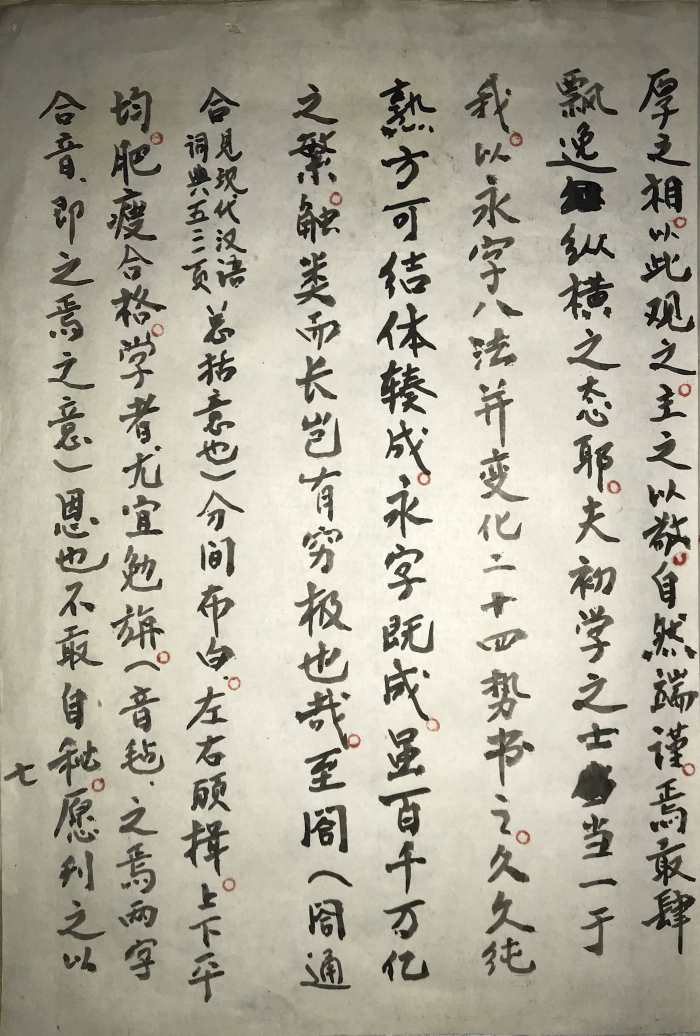 厚之相。以此观之。主之以敬。自然端谨。焉敢肆
飘逸纵横之态耶。夫初学之士当一于
我。以永字八法并变化二十四势书之。久久纯
熟方可结体辏成。永字既成。虽百千万亿
之繁。触类而长岂有穷极也哉。至阁（阁通
合见现代汉语词典五三二页总括意也）分间布白。左右顾揖。上下平
均。肥瘦合格。学者尤宜勉旃。（音毡、之焉两字
合音、即之焉之意）恩也不敢自秘。愿刊之以
七